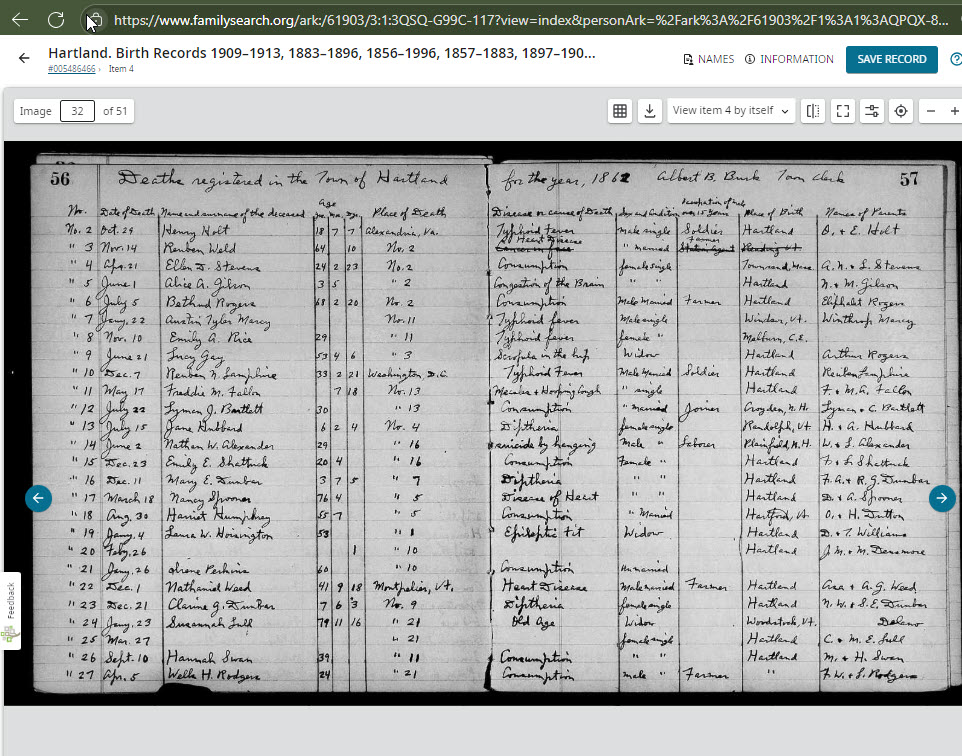 https://www.familysearch.org/ark:/61903/3:1:3QSQ-G99C-117?view=index&personArk=%2Fark%3A%2F61903%2F1%3A1%3AQPQX-8...
Hartland. Birth Records 1909–1913, 1883–1896, 1856–1996, 1857–1883, 1897–190...
#005486466 › Item 4
NAMES
INFORMATION
SAVE RECORD
Image 32 of 51
View item 4 by itself
56 Deaths registered in the Town of Hartland for the year, 1862 Albert B. Burk Town Clerk 57
No. Date of Death Name and surname of the deceased Age Place of Death Disease or cause of Death Sex and Condition Place of Birth Names of Parents
No. 2 Oct. 29 Henry Holt 18 7 7 Alexandria, Va. Typhoid Fever male single Soldier Hartland O. & E. Holt
" 3 Nov. 14 Reuben Weld 64 10 No. 2 Heart Disease " married Farmer
" 4 Apr. 21 Ellen D. Stevens 24 2 23 No. 2 Consumption female single Townsend, Mass A. N. & L. Stevens
" 5 June 1 Alice A. Gilson 3 5 " 2 Congestion of the Brain " " Hartland N. & M. Gilson
" 6 July 5 Bethud Rogers 68 2 20 No. 2 Consumption Male Married Farmer Hartland Eliphalet Rogers
" 7 Jany. 22 Austin Tyler Marcy No. 11 Typhoid fever Male single Windsor, Vt. Winthrop Marcy
" 8 Nov. 10 Emily A. Rice 29 " 11 Typhoid fever female " Melburn, C.E.
" 9 June 21 Lucy Gay 53 4 6 " 3 Scrofula in the hip Widow Hartland Arthur Rogers
" 10 Dec. 7 Reuben N. Lamphire 33 2 21 Washington, D.C. Typhoid Fever Male Married Soldier Hartland Reuben Lamphire
" 11 May 17 Freddie M. Fallon 7 18 No. 13 Measles & Hooping Cough " single Hartland F. & M. A. Fallon
" 12 July 22 Lyman J. Bartlett 30 " 13 Consumption " married Joiner Croyden, N.H. Lyman & C. Bartlett
" 13 July 15 Jane Hubbard 6 2 4 No. 4 Diptheria female single Randolph, Vt H. & A. Hubbard
" 14 June 2 Nathan W. Alexander 29 " 16 suicide by hanging Male " Laborer Plainfield, N.H. W. & L. Alexander
" 15 Dec. 23 Emily E. Shattuck 20 4 " 16 Consumption Female " Hartland F. & L. Shattuck
" 16 Dec. 11 Mary E. Dunbar 3 7 5 " 7 Diptheria " " Hartland F. A. & R. G. Dunbar
" 17 March 18 Nancy Spooner 76 4 " 5 Disease of Heart " " Hartland D. & A. Spooner
" 18 Aug. 30 Harriet Humphrey 55 7 " 5 Consumption " Married Hartford, Vt O. & H. Dutton
" 19 Jany. 4 Laura W. Hoisington 53 " 1 Epileptic Fit Widow Hartland D. & T. Williams
" 20 Feby. 26 1 " 10 Hartland J. M. & M. Densmore
" 21 Jany. 26 Irene Perkins 60 " 10 Consumption Unmarried
" 22 Dec. 1 Nathaniel Weed 41 9 18 Montpelier, Vt. Heart Disease Male married Farmer Hartland Asa & A. G. Weed
" 23 Dec. 21 Clarine G. Dunbar 7 6 3 No. 9 Diptheria female single Hartland N. W. & S. E. Dunbar
" 24 Jany. 23 Susannah Lull 79 11 16 " 21 Old Age Widow Woodstock, Vt. Delano
" 25 Mar. 27 " 21 female single Hartland C. & M. E. Lull
" 26 Sept. 10 Hannah Swan 39 " 11 Consumption " " Hartland M. & H. Swan
" 27 Apr. 5 Wells H. Rodgers 24 " 21 Consumption male " Farmer " F. W. & L. Rodgers
Feedback